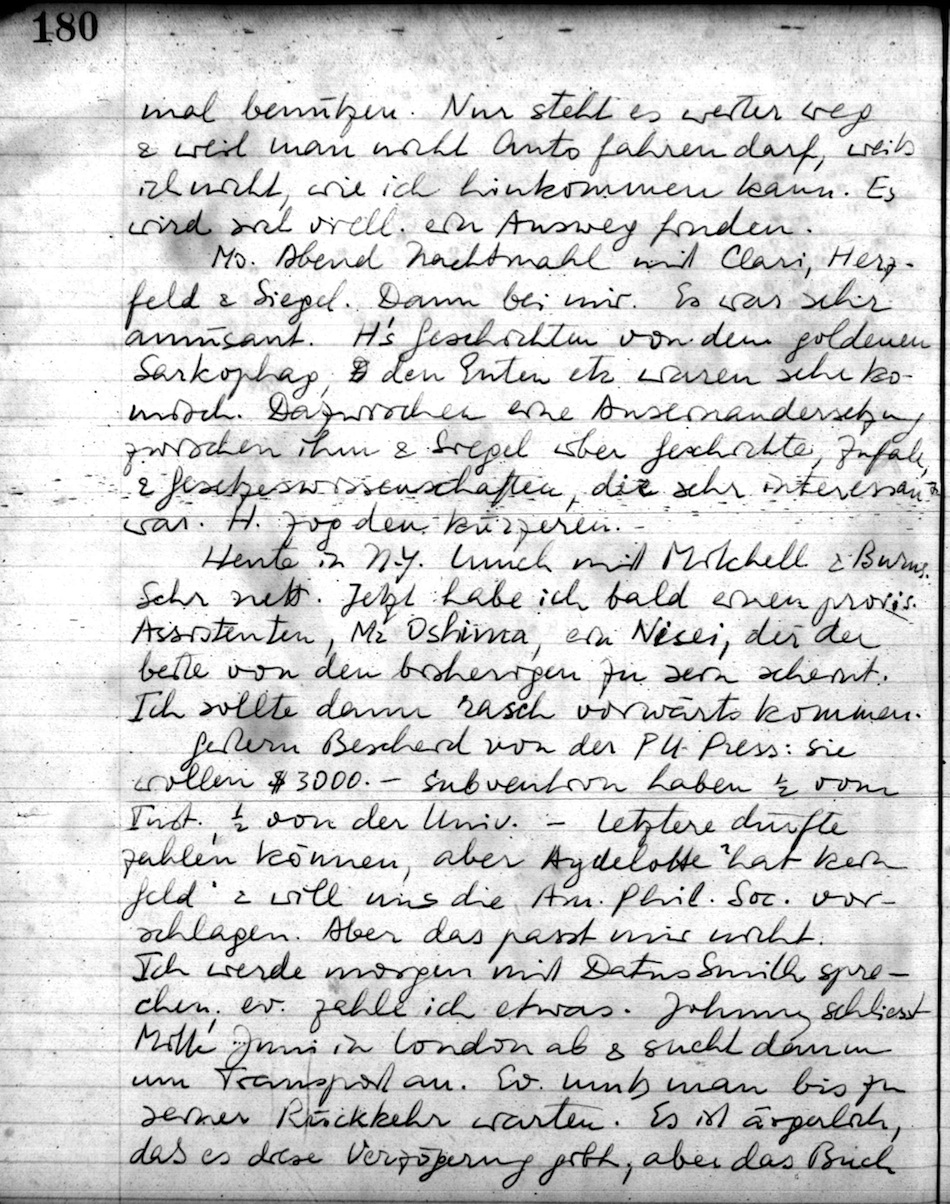 180
mal benützen. Nur steht es weiter weg
& weil man nicht Auto fahren darf, weiß
ich nicht, wie ich hinkommen kann. Es
wird sich viell. ein Ausweg finden.
Mo. Abend Nachtmahl mit Clari, Herz-
feld & Siegel. Dann bei mir. Es war sehr
amüsant. H's Geschichten von dem goldenen
Sarkophag, den Enten etc waren sehr ko-
misch. Dazwischen eine Auseinandersetzung
zwischen ihm & Siegel über Geschichte, Zufall,
& Gesetzeswissenschaften, die sehr interessant
war. H. zog den kürzeren. –
Heute in N.Y. Lunch mit Mitchell & Burns.
Sehr nett. Jetzt habe ich bald einen provis.
Assistenten, Mr Oshima, ein Nisei, der der
beste von den bisherigen zu sein scheint.
Ich sollte dann rasch vorwärts kommen.
Gestern Bescheid von der PU Press: sie
wollen $3000.– Subvention haben ½ vom
Inst., ½ von der Univ. – Letztere dürfte
zahlen können, aber Aydelotte "hat kein
Geld" & will uns die Am. Phil. Soc. vor-
schlagen. Aber das passt mir nicht.
Ich werde morgen mit Datus Smith spre-
chen, ev. zahle ich etwas. Johnny schliesst
Mitte Juni in London ab & sucht dann
um Transport an. Ev. muß man bis zu
seiner Rückkehr warten. Es ist ärgerlich,
daß es diese Verzögerung gibt, aber das Buch